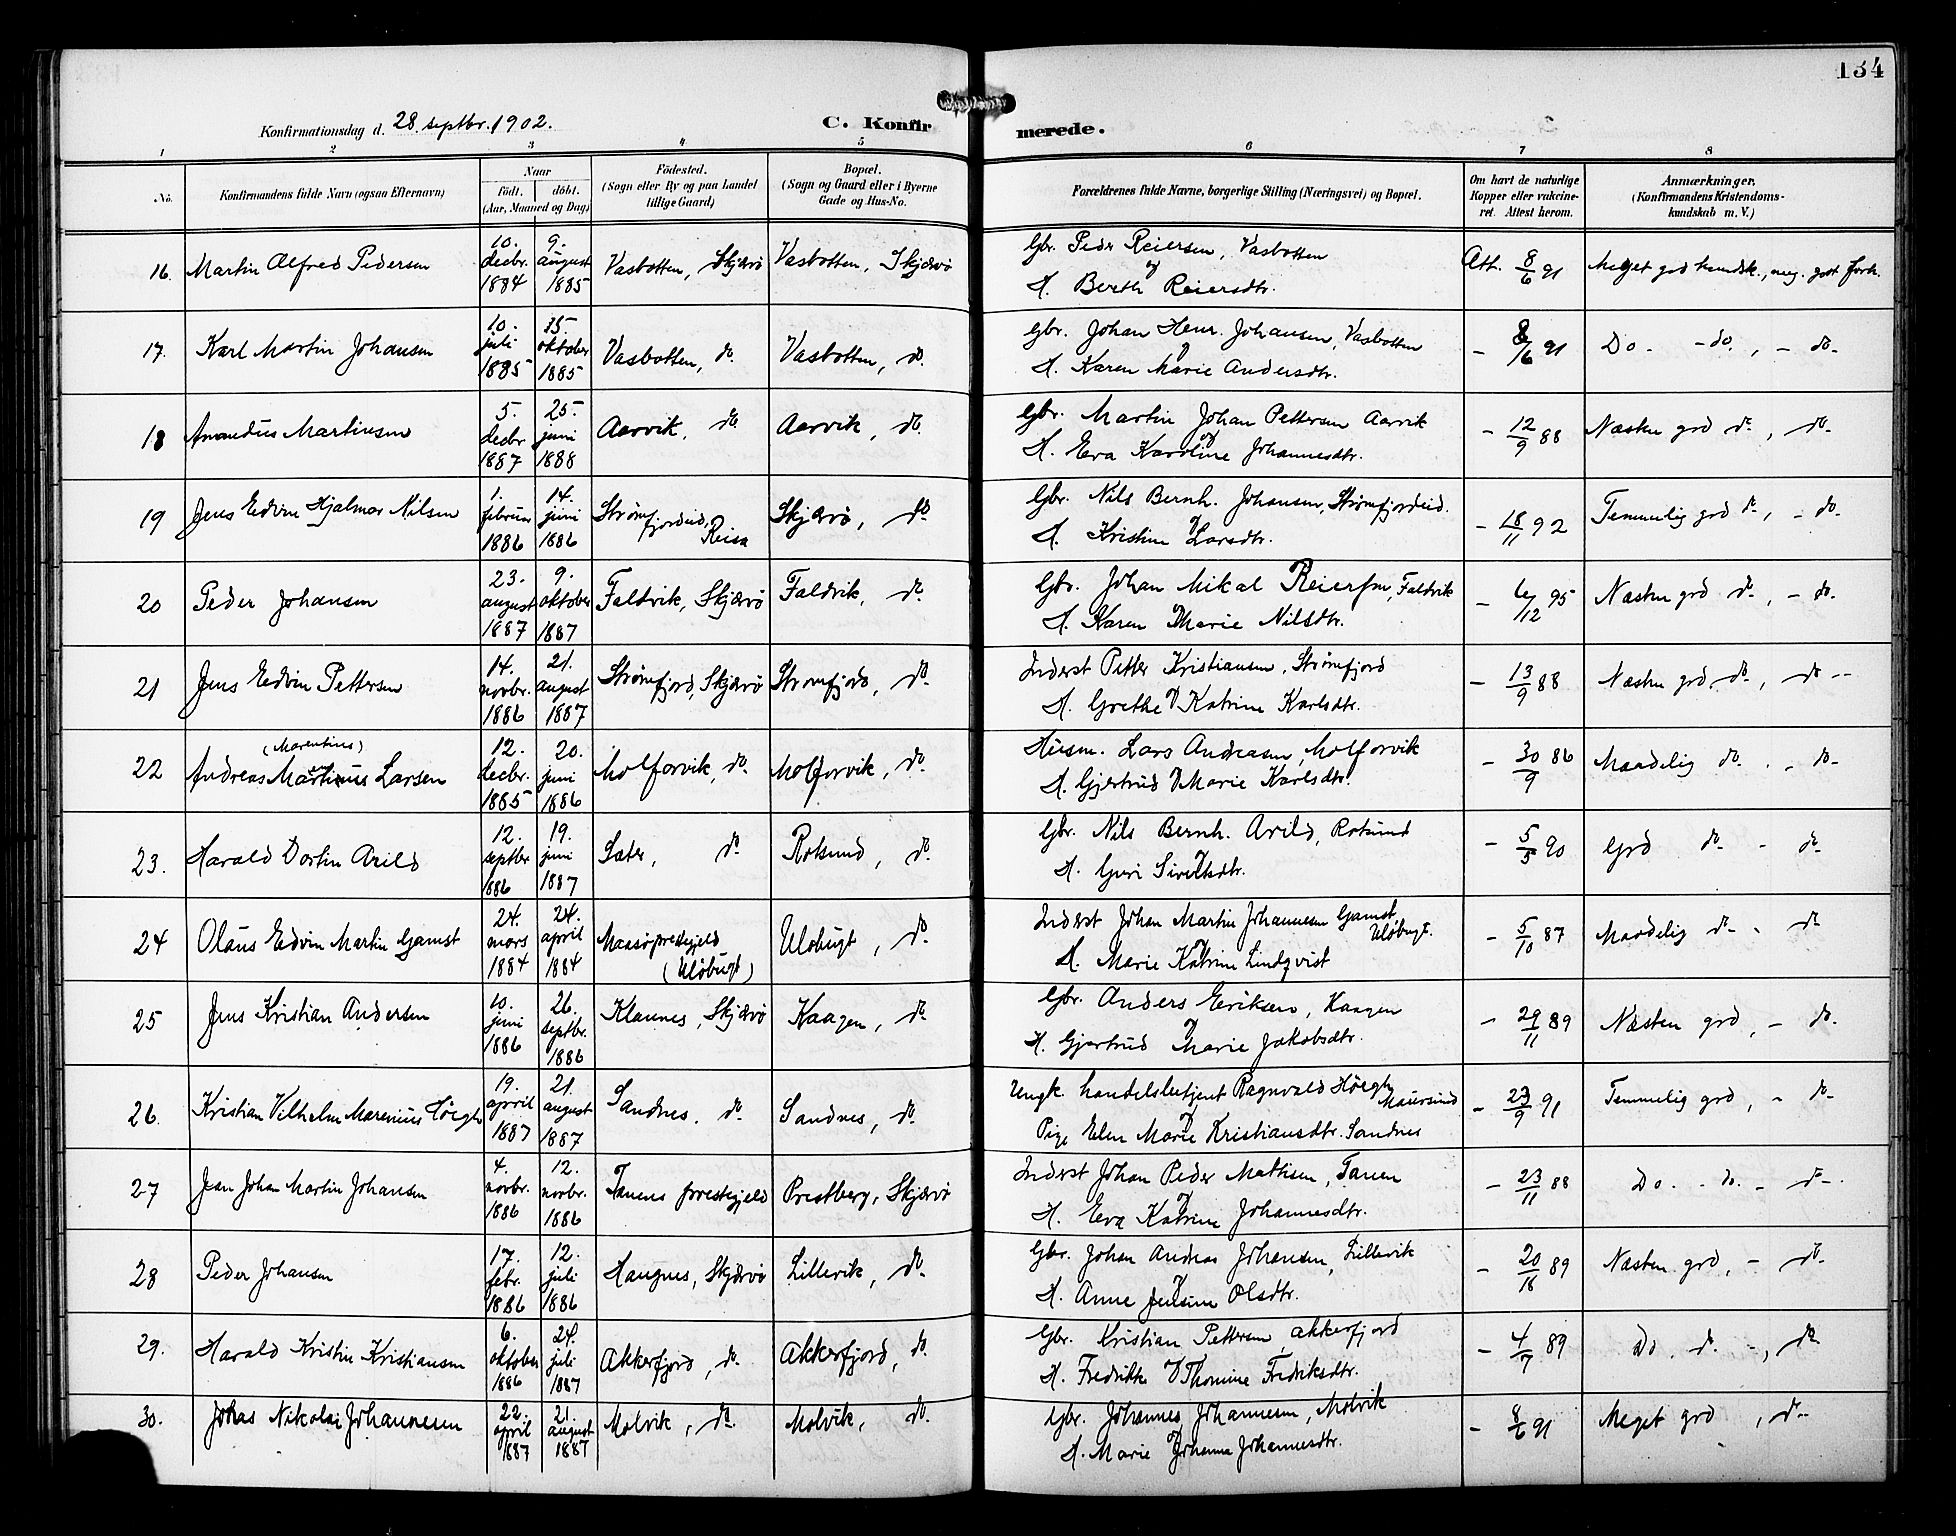 134
Konfirmationsdag d. 28. septbr. 1902.
C. Konfirmerede.
1 2 3 4 5 6 7 8
No.
Konfirmandens fulde Navn (ogsaa Efternavn)
Naar
födt. döbt.
(Aar, Maaned og Dag)
Födested.
(Sogn eller By og paa Landet
tillige Gaard)
Bopæl.
(Sogn og Gaard eller i Byerne
Gade og Hus-No.
Forældrenes fulde Navne, borgerlige Stilling (Næringsvei) og Bopæl.
Om havt de naturlige
Kopper eller vakcine-
ret. Attest herom.
Anmærkninger.
(Konfirmandens Kristendoms-
kundskab m. V.)
16. Martin Alfred Pedersen 10. decbr. 1884 9. august 1885 Vasbotten, Skjærvö Vasbotten, Skjærvö Gbr. Peder Reiersen, Vasbotten
og
H. Berith Reiersdtr. Att. 8/6 91 Meget god kundsk., meg. godt forh.
17. Karl Martin Johansen 10. juli 1885 oktober 1885 Vasbotten, do. Vasbotten, do. Gbr. Johan Henr. Johansen, Vasbotten
H. Karen Marie Andersdtr. - 8/6 91 Do - do., - do-
18 Amandus Martinsen 5. decbr 1887 25. juni 1888 Aarvik, do. Aarvik, do. Gbr. Martin Johan Pettersen Aarvik
og
H. Eva Karoline Johannesdtr. - 12/9 88 Næsten god do, do-
19 Jens Edvin Hjalmar Nilsen 1. februar 1886 14. juni 1886 Strømfjordeid, Reisa Skjærvö, do Gbr. Nils Bernh. Johansen, Strømfjordeid.
H. Kristine Larsdtr. - 18/11 92 Temmelig god do, - do-
20 Peder Johansen 23. august 1887 9. oktober 1887 Faldvik, Skjærvö Faldvik, do Gbr. Johan Mikal Reiersen, Faldvik
H. Karen Marie Nilsdtr. - 6/12 95 Næsten god do, - do-
21 Jens Edvin Pettersen 14. novbr. 1886 21. august 1887 Strømfjord, Skjærvö Strømfjord, do Inderst Petter Kristiansen, Strømfjord
H. Grethe Katrine Karlsdtr. - 13/9 88 Næsten god do, do-
22 (Marentius)
Andreas Larsen 12. decbr. 1885 20. juni 1886 Molforvik, do. Molforvik, do. Husm. Lars Andreasen, Molforvik
H. Gjertrud Marie Karlsdtr. - 30/9 86 Maadelig do. - do-
23. Harald Dortin Arild 12. septbr 1886 19. juni 1887 Sæter, do Rotsund, do. Gbr. Nils Bernh. Arild, Rotsund
H. Guri Sivertsdtr. - 5/5 90 God do - do
24 Olaus Edvin Martin Gamst 24. mars 1884 24. april 1884 Maasö prestegjeld
(Ulöbugt) Ulöbugt, do. Inderst Johan Martin Johannesen Gamst, Ulöbugt.
H. Marie Katrine Lindqvist - 5/10 87 Maadelig do - do
25 Jens Kristian Andersen 10. juni 1886 26. septbr. 1886 Klaunes, Skjærvö Kaagen, do Gbr. Anders Eriksen, Kaagen
H. Gjertrud Marie Jakobsdtr. - 29/11 89 Næsten god, - do-
26. Kristian Vilhelm Marenius Höegh 19. april 1887 21. august 1887 Sandnes, do. Sandnes, do. Ungk. handelsbetjent Ragnvald Höegh Maursund
Pige Elen Marie Kristiansdtr. Sandnes - 23/9 91 Temmelig god, - do-
27 Jean Johan Martin Johansen 4. novbr. 1886 12. novbr. 1886 Tanens prestegjeld Prestberg, Skjærvö Inderst Johan Peder Mathisen, Tanen
H. Eva Katrine Johannesdtr. - 23/11 88 Do - do. - do-
28 Peder Johansen 17. febr. 1886 12. juli 1886 Haugnes, Skjærvö Lillevik, do. Gbr. Johan Andreas Johansen, Lillevik
H. Anne Jensine Olsdtr. - 89 Næsten god, - do-
29. Harald Kristin Kristiansen 6. oktober 1886 24. juli 1887 Akkerfjord, do. Akkerfjord, do. Gbr. Kristian Pettersen Akkerfjord
H. Fredrikke Thomine Fredriksdtr. - 4/7 89 Do. do. -, do
30. Johas Nikolai Johannesen 22. april 1887 21. august 1887 Molvik, do. Molvik, do. Gbr. Johannes Johannesen, Molvik
og
H. Marie Johanna Johannesdtr. - 8/6 91 Meget god, do-